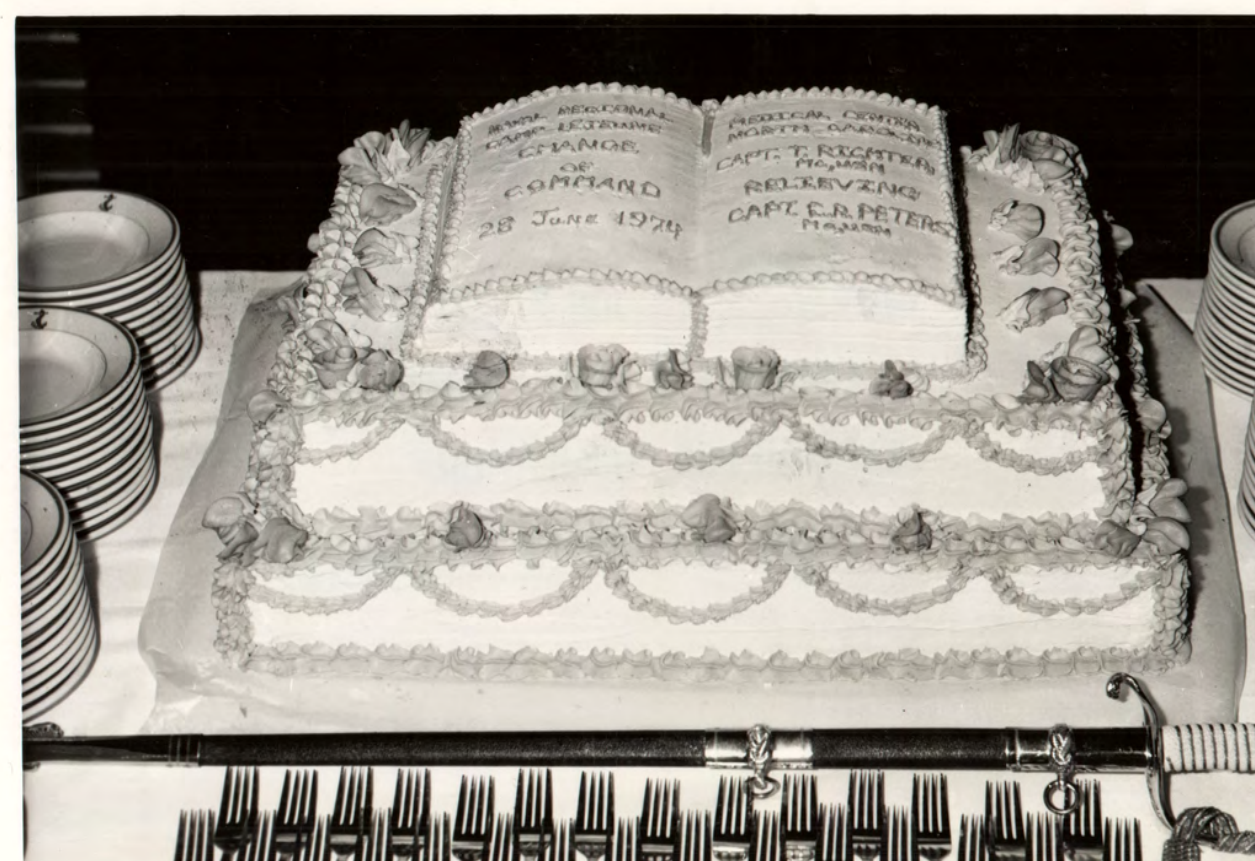 NAVAL REGIONAL
CAMP LEJEUNE
CHANGE
OF
COMMAND
28 June 1974
MEDICAL CENTER
NORTH CAROLINA
CAPT. T. RICHTER,
MC, USN
RELIEVING
CAPT. E.R. PETERS
MC, USN